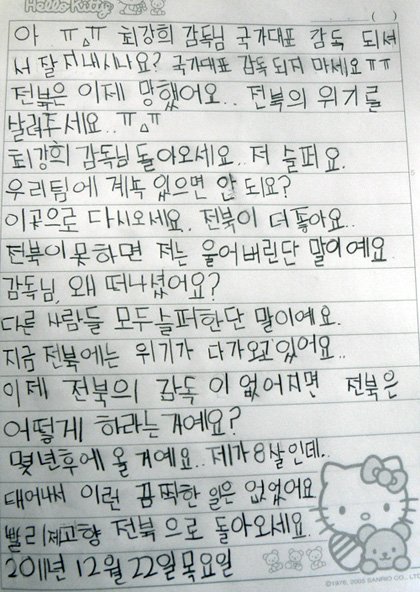 Hello Kitty
( )
아 ㅠㅛㅠ 최강희 감독님 국가대표 감독 되셔
서 잘 지내시나요? 국가대표 감독 되지 마세요 ㅠㅠ
전북은 이제 망했어요.. 전북의 위기를
살려주세요..ㅠㅛㅠ
최강희 감독님 돌아오세요.. 저 슬퍼요.
우리팀에 계속 있으면 안 되요?
이곳으로 다시오세요. 전북이 더 좋아요..
전북이 못하면 저는 울어버린단 말이예요
감독님, 왜 떠나셨어요?
다른 사람들 모두 슬퍼한단 말이예요.
지금 전북에는 위기가 다가오고있어요..
이제 전북의 감독 이 없어지면 전북은
어떻게 하라는 거예요?
몇년후에 올 거예요.. 제가 8살인데..
태어나서 이런 끔찍한 일은 없었어요
빨리 제고향 전북 으로 돌아오세요.
2011년 12월 22일 목요일
©1976, 2005 SANRIO CO., LTD